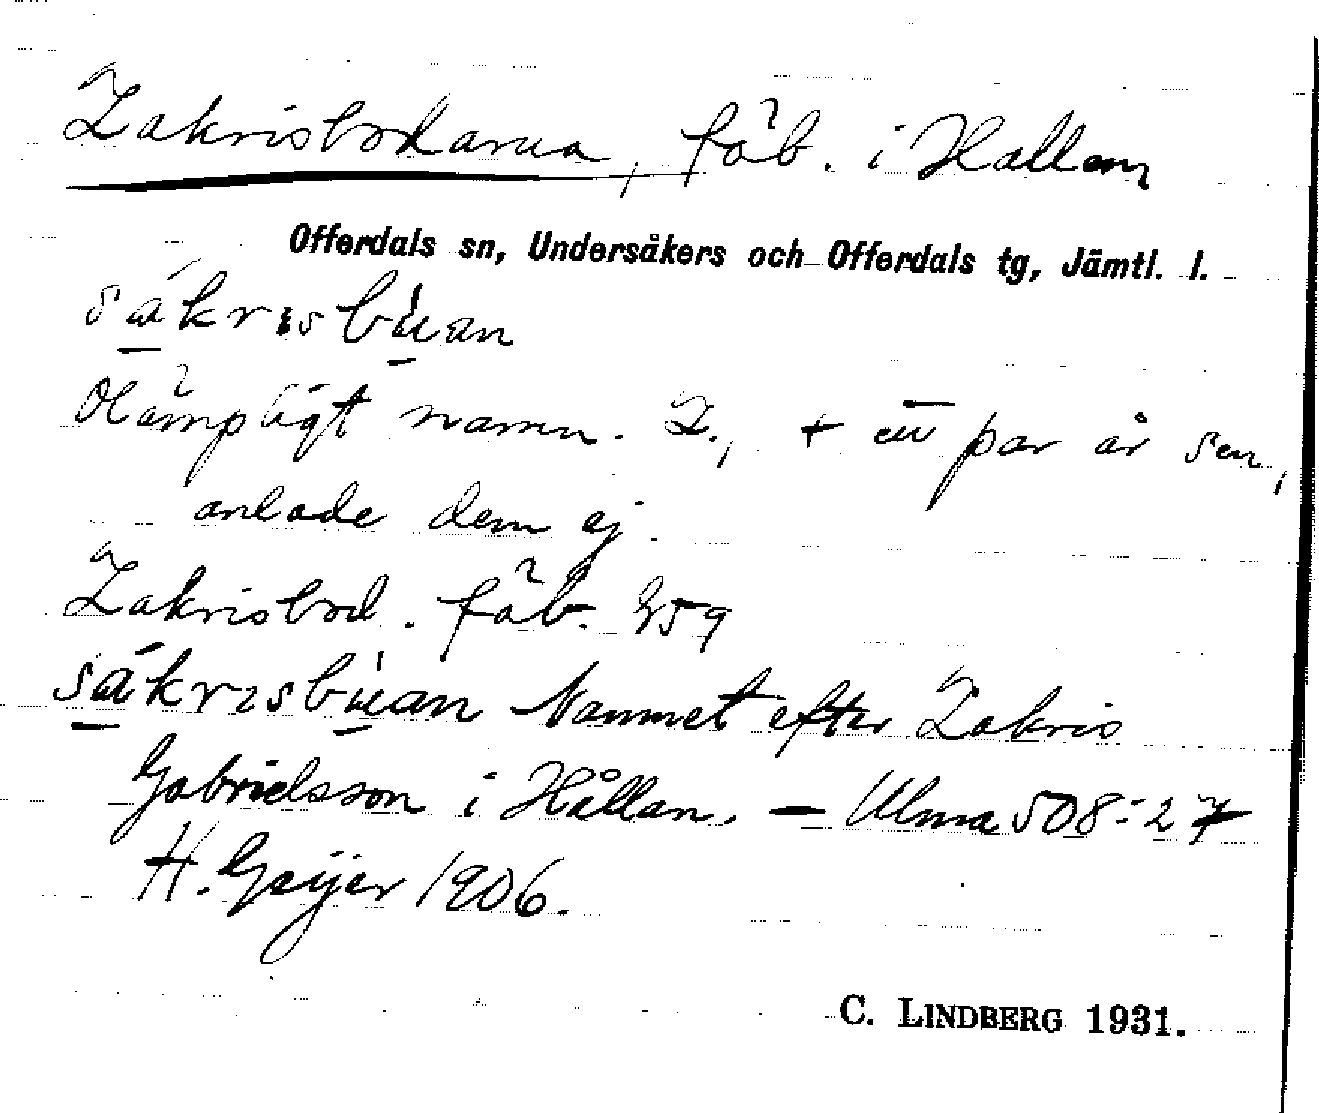 Zakrisbodarna, fäb. i Hållan
Offerdals sn, Undersåkers och Offerdals tg, Jämtl. l.
sákrɪsbùan
Olämpligt namn. Z., + ett par år sen,
anlade dem ej.
Zakrisbod. fäb. 859
sákrɪsbùan Namnet efter Zakris
Gabrielsson i Hållan. — Ulma 508:27
H. Geijer 1906.
C. LINDBERG 1931.